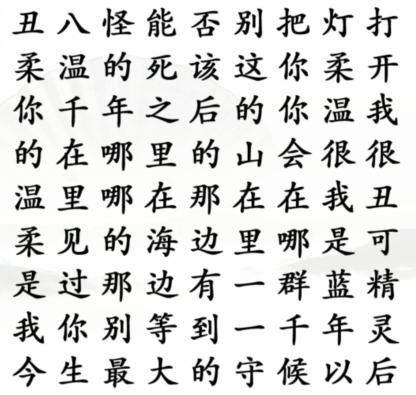 丑八怪能否别把灯打
柔温的死该这你柔开
你千年之后的你温我
的在哪里的山会很很
温里哪在那在在我丑
柔见的海边里哪是可
是过那边有一群蓝精
我你别等到一千年灵
今生最大的守候以后